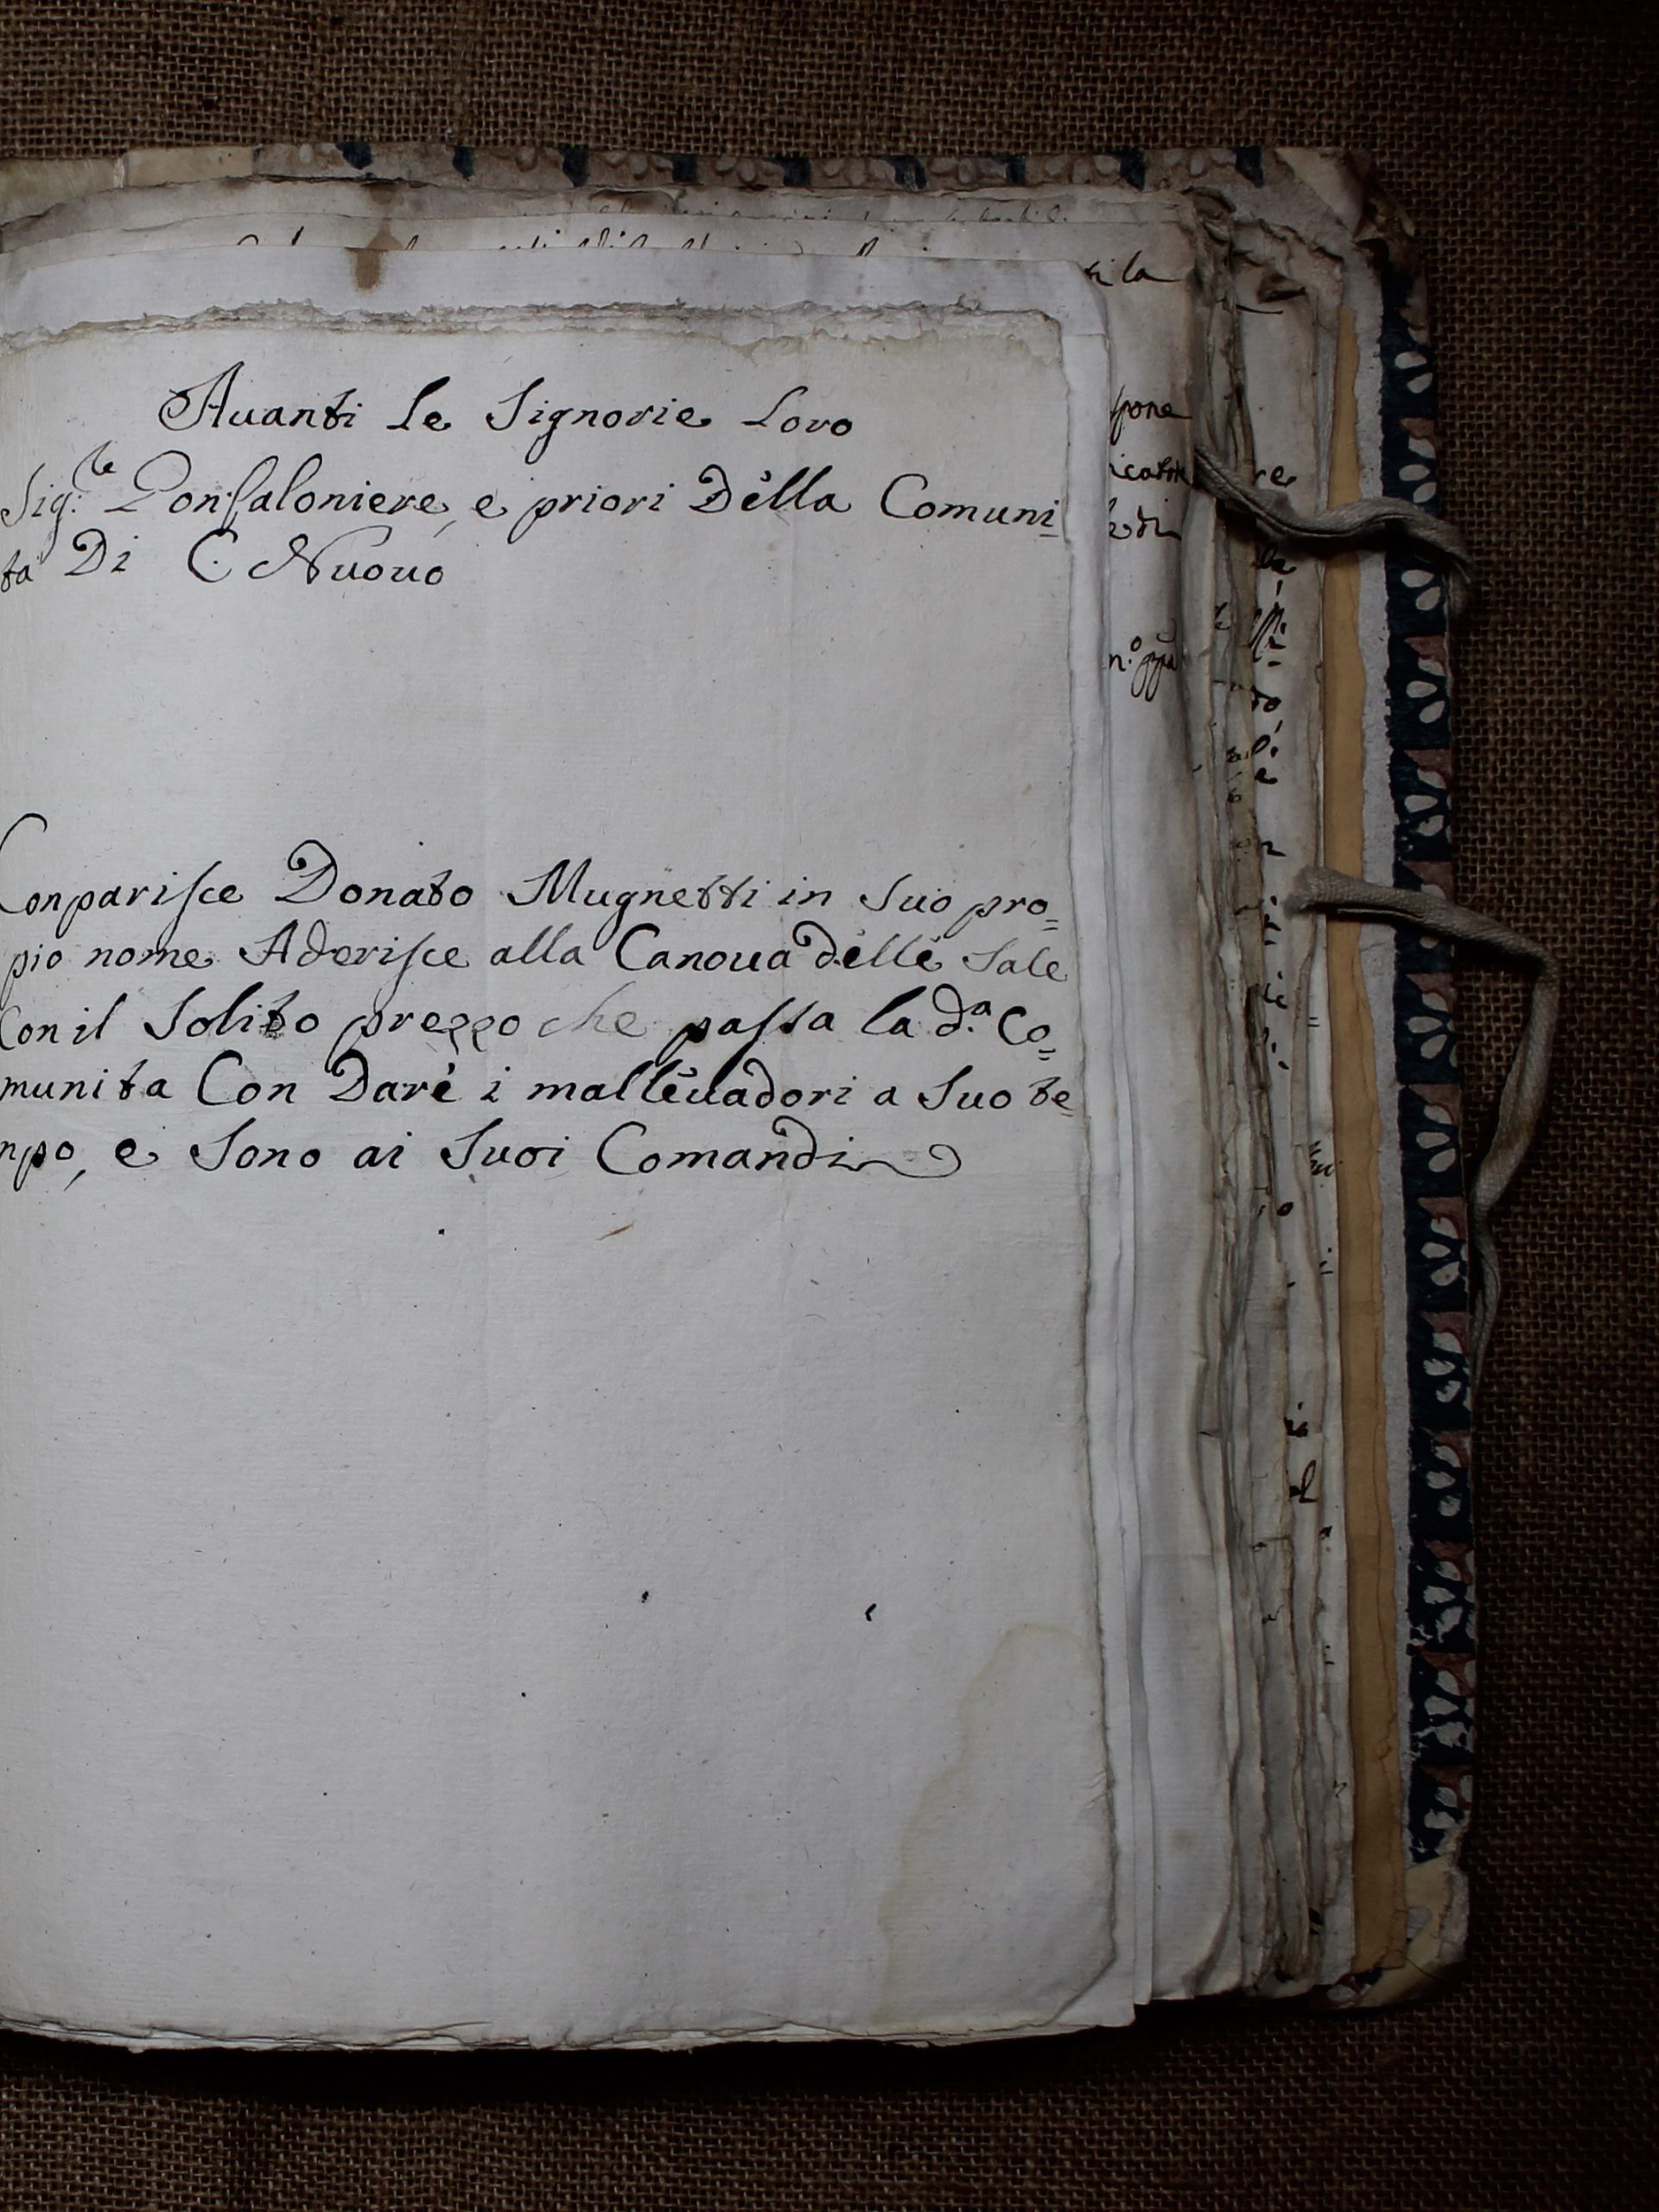 Auanti le Signorie Loro
Sig.re Gonfaloniere, e priori Della Comuni=
ta Di C. Nuouo
Conparisce Donato Mugnetti in suo pro=
pio nome Aderisce alla Canoua delle Sale
Con il Solito prezzo che passa la d.a Co=
munita Con Dare i malleuadori a Suo te=
npo, e Sono ai Suoi Comandi
ti la
pone
re
n.o